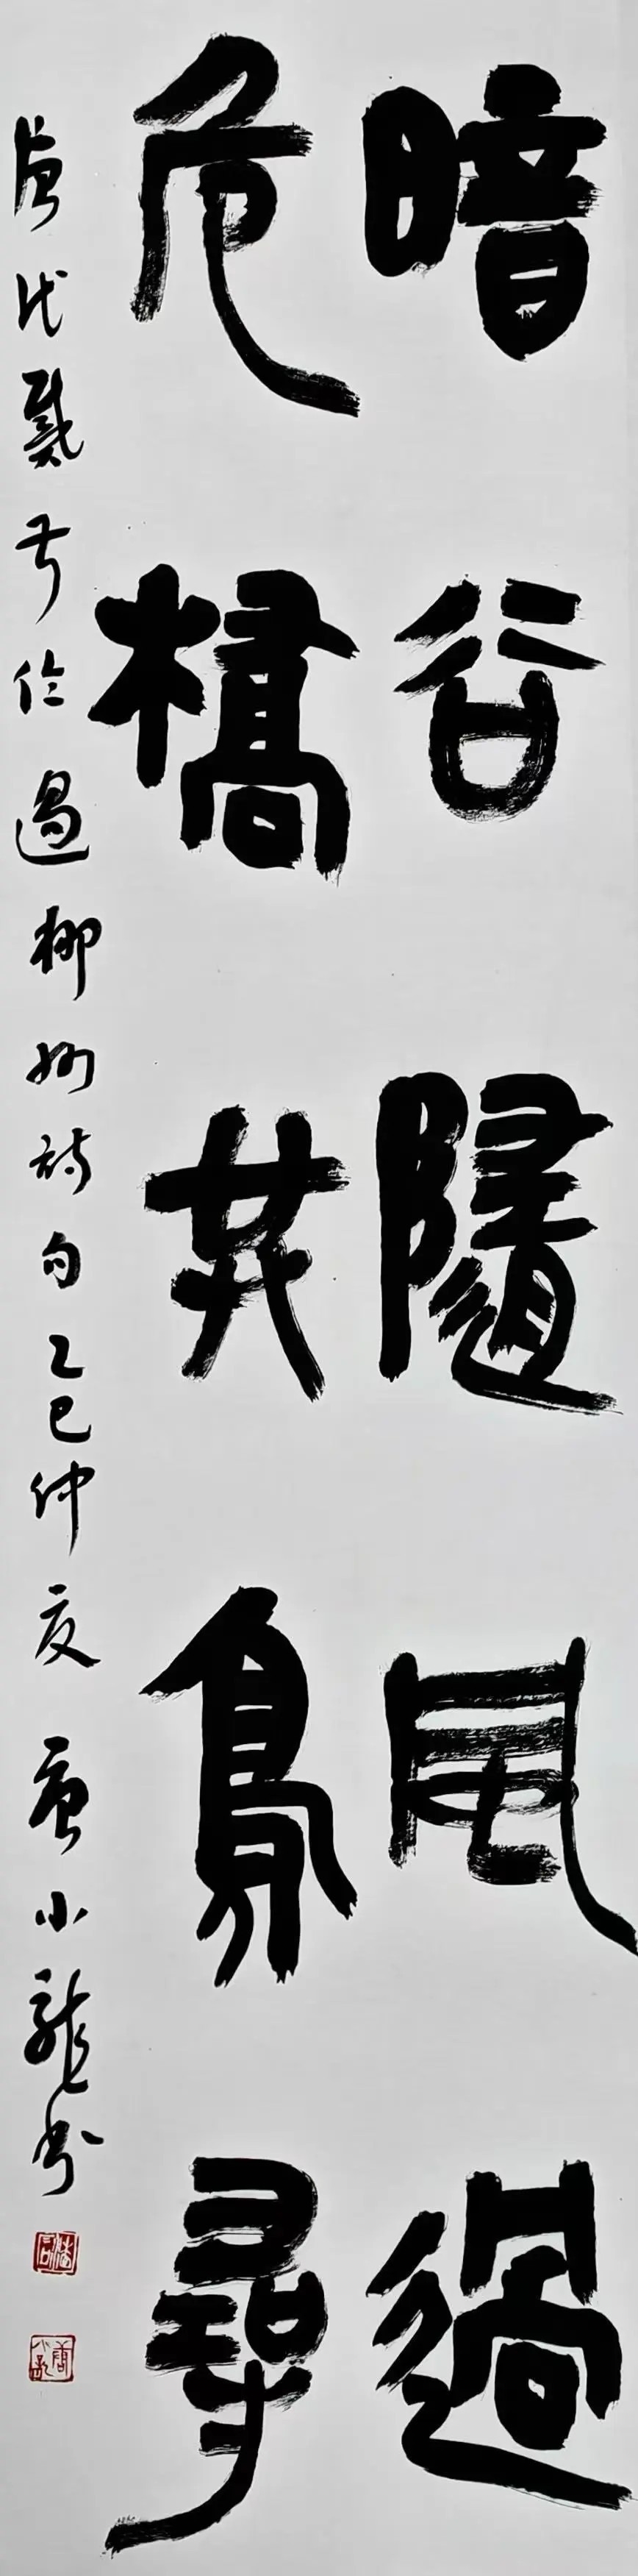 暗谷隨風過
危橋共鳥尋
唐代戴叔伦過柳州詩句乙巳仲夏唐小龍书